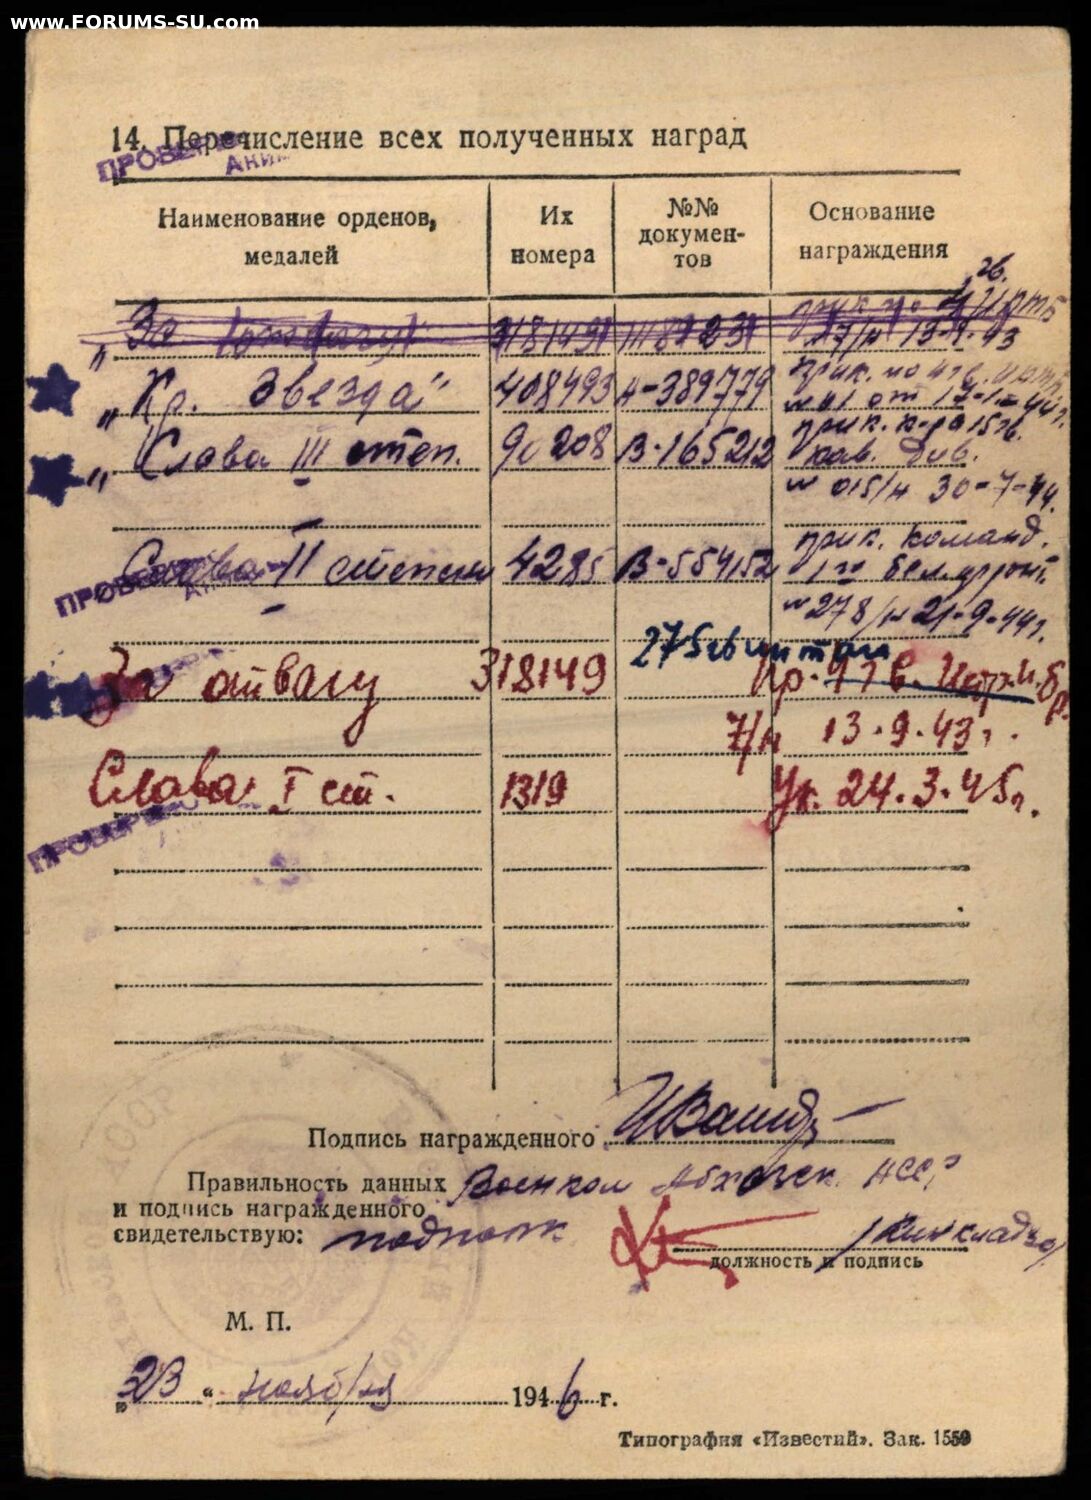 www.FORUMS-SU.com
14. Перечисление всех полученных наград
ПРОВЕРЕНО
Наименование орденов, медалей
Их номера
№№ документов
Основание награждения
За отвагу 318149
"Кр. Звезда" 408493 А-389779 прик. по
№ 01 от 17-1-44г.
"Слава III степ. 90208 В-165212 прик. к-ра 15 гв.
кав. див.
№ 015/н 30-7-44.
Слава II степени 4285 В-554152 прик. команд.
1го Бел. фронт.
№ 278/н 21-9-44г.
ПРОВЕРЕНО
За отвагу 318149 Пр.
7/н 13.9.43г.
Слава I ст. 1319 Ук. 24.3.45г.
ПРОВЕРЕНО
Подпись награжденного
Правильность данных Военком Абхазск. АССР
и подпись награжденного
свидетельствую: подполк
должность и подпись
М. П.
"23" ноября 1946 г.
Типография «Известий». Зак. 1559